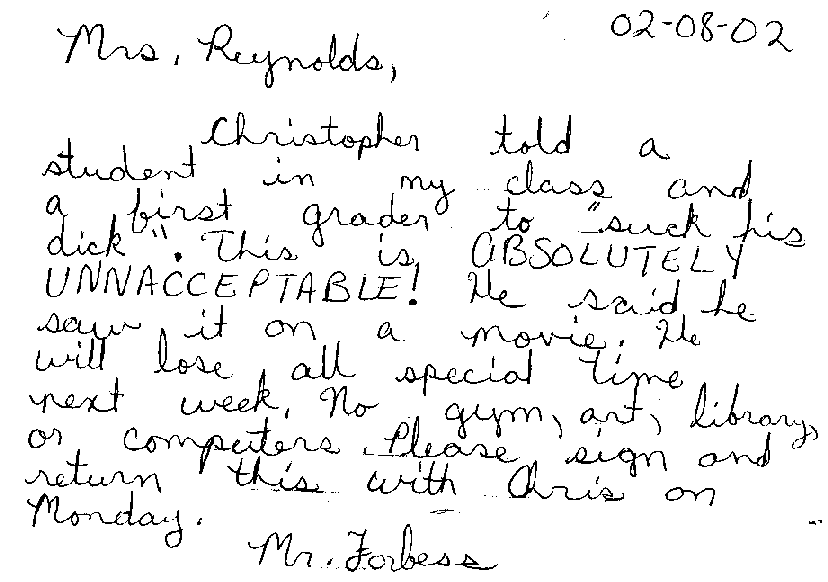 02-08-02
Mrs. Reynolds,
Christopher told a
student in my class and
a first grader to "suck his
dick". This is ABSOLUTELY
UNNACCEPTABLE! He said he
saw it on a movie. He
will lose all special time
next week. No gym, art, library,
or computers. Please sign and
return this with Chris on
Monday.
Mr. Forbess